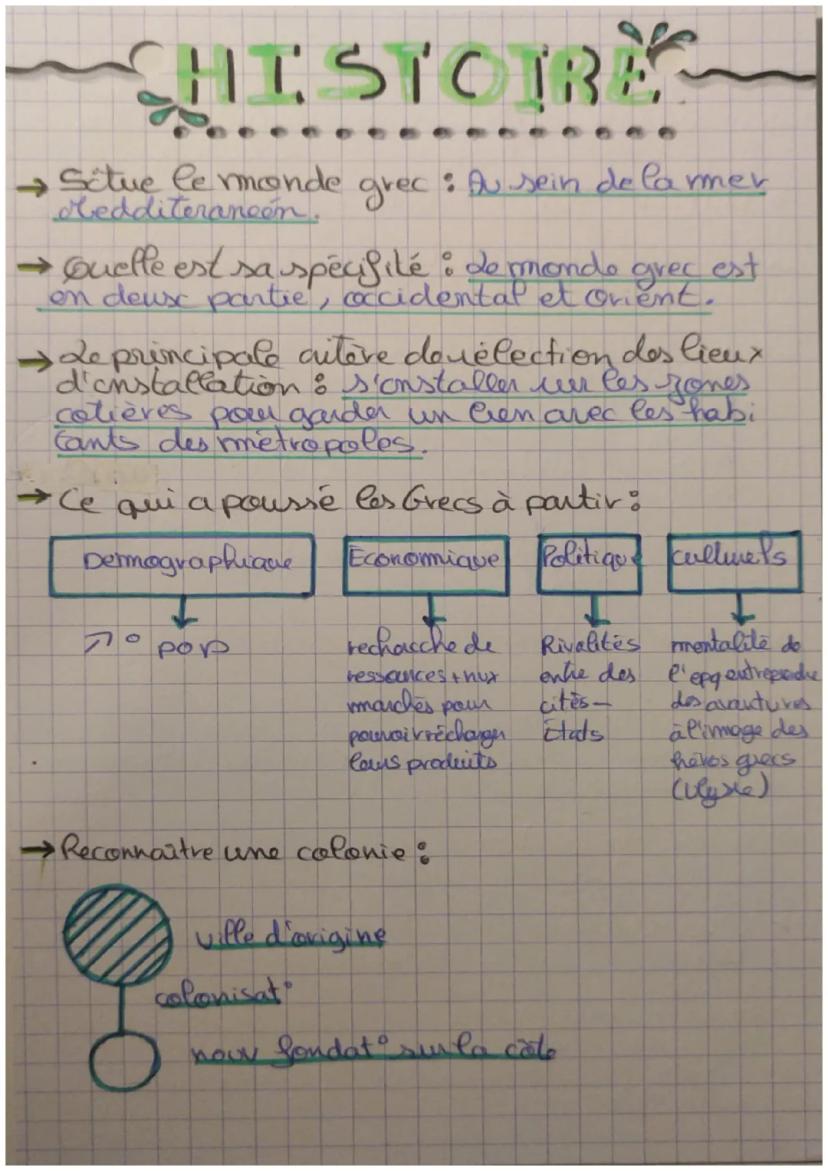 HISTOIRE
→ Situe le monde grec : Au sein de la mer
Medditeranéen.
→ Quelle est sa spécifité : Le monde grec est
en deux partie, occidental et orient.
→ Le principale critère de sélection des lieux
d'installation : s'installer sur les zones
cotières pour garder un lien avec les habi
tants des métropoles.
→ Ce qui a poussé les Grecs à partir :
Demographique Économique Politique culturels
↗° pop
recherche de
ressources + nux
marchés pour
pouvoir récharger
leurs produits
Rivalités
entre des
cités-
États
mentalité de
l'epq entreprendre
des avantures
à l'image des
héros grecs
(Ulysse)
→ Reconnaître une colonie :
ville d'origine
colonisat°
nouv fondat° sur la côte